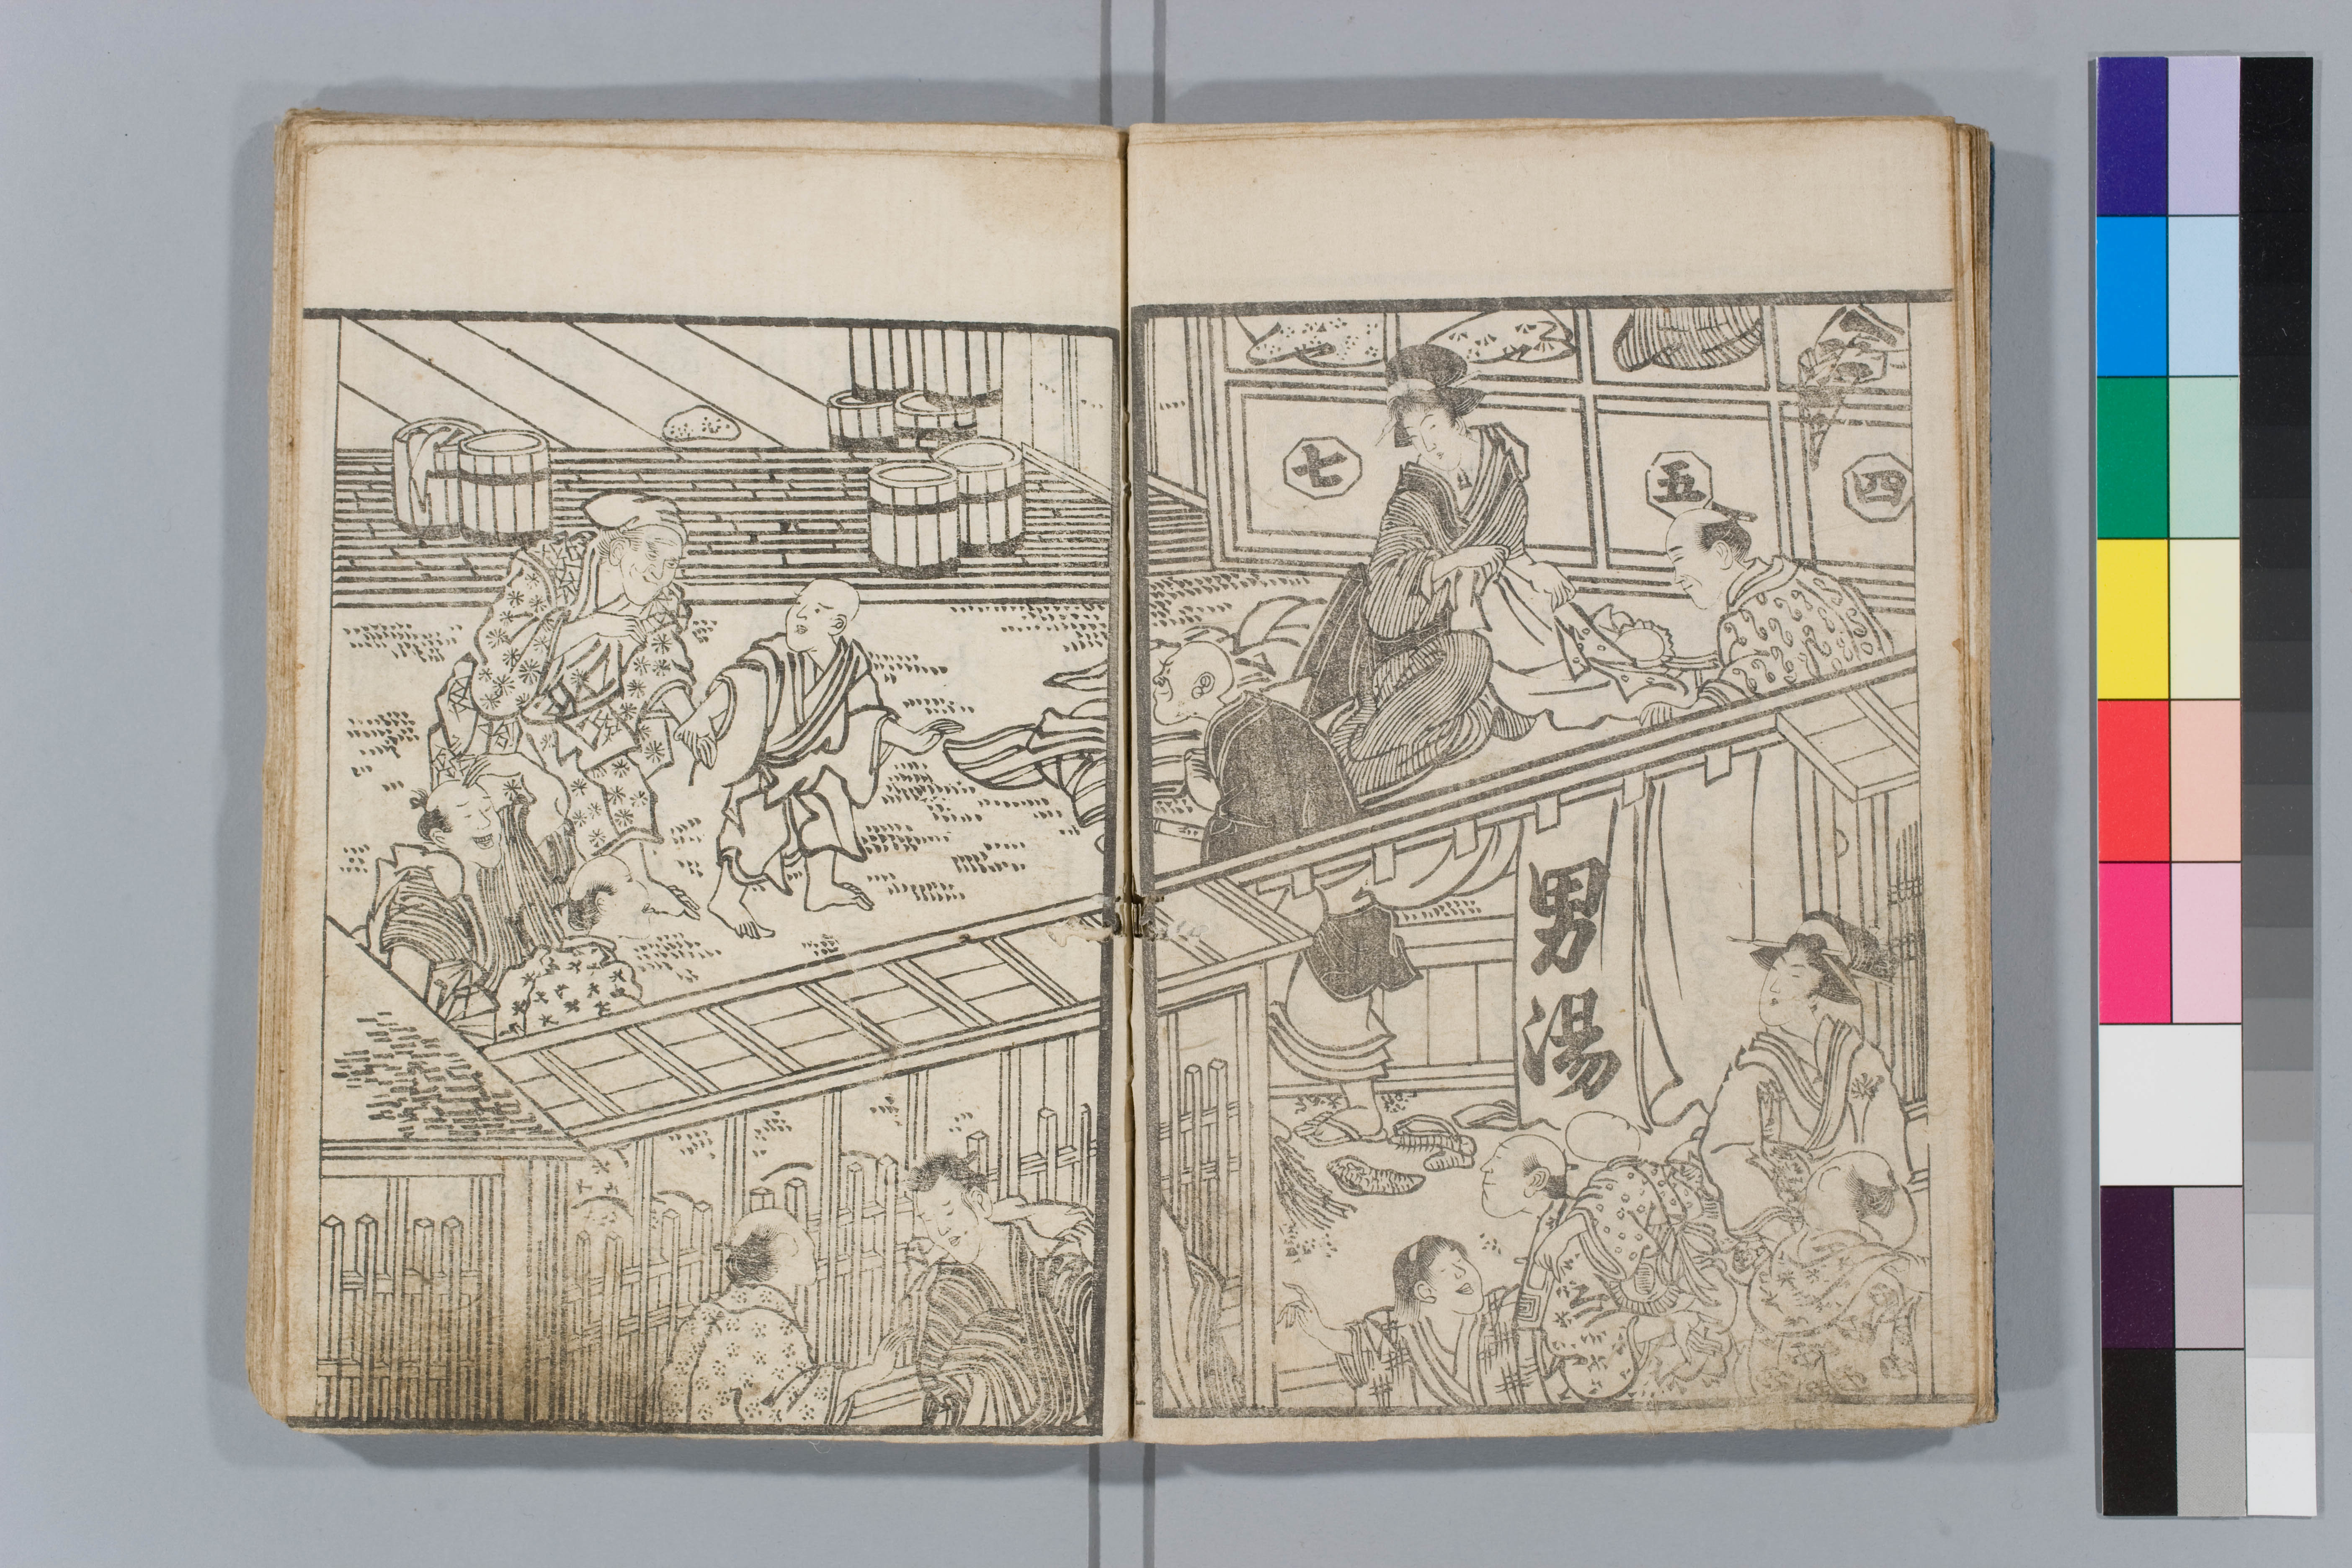 四
五
七
男湯